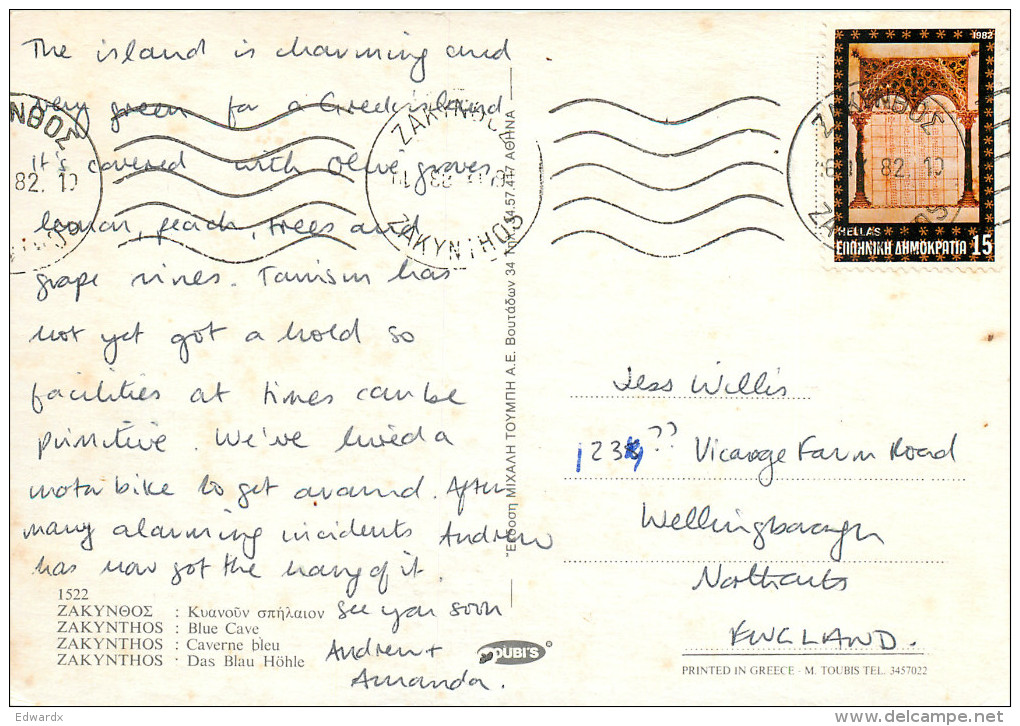 The island is charming and
very green for a Greek island.
It's covered with olive groves,
lemon, peach, trees and
grape vines. Tourism has
not yet got a hold so
facilities at times can be
primitive. We've hired a
motor bike to get around. After
many alarming incidents Andrew
has now got the hang of it.
See you soon
Andrew +
Amanda.
1522
ΖΑΚΥΝΘΟΣ : Κυανοῦν σπήλαιον
ZAKYNTHOS : Blue Cave
ZAKYNTHOS : Caverne bleu
ZAKYNTHOS : Das Blau Höhle
TOUBI'S ®
Ἔκδοση ΜΙΧΑΛΗ ΤΟΥΜΠΗ Α.Ε. Βουτάδων 34 Τηλ. 34.57.417 ΑΘΗΝΑ
ΖΑΚΥΝΘΟΣ
ZAKYNTHOS
82. 10
1982
HELLAS
ΕΛΛΗΝΙΚΗ ΔΗΜΟΚΡΑΤΙΑ 15
ΖΑΚΥΝΘΟΣ
82. 10
Jess Willis
123 ?? Vicarage Farm Road
Wellingborough
Northants
ENGLAND.
PRINTED IN GREECE - M. TOUBIS TEL. 3457022
Edwardx
delcampe.net